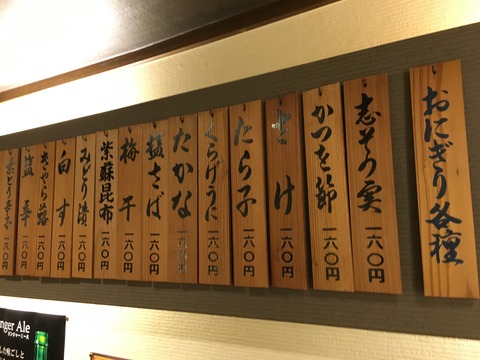 おにぎり各種
志その実 一六〇円
かつを節 一六〇円
さけ 一六〇円
たら子 一六〇円
くらげうに 一六〇円
たかな 一六〇円
塩さば 一六〇円
梅干 一六〇円
紫蘇昆布 一六〇円
みどり漬 一六〇円
白す 一六〇円
きゃら蕗 一六〇円
一六〇円
一六〇円
nger Ale
ジンジャーエール